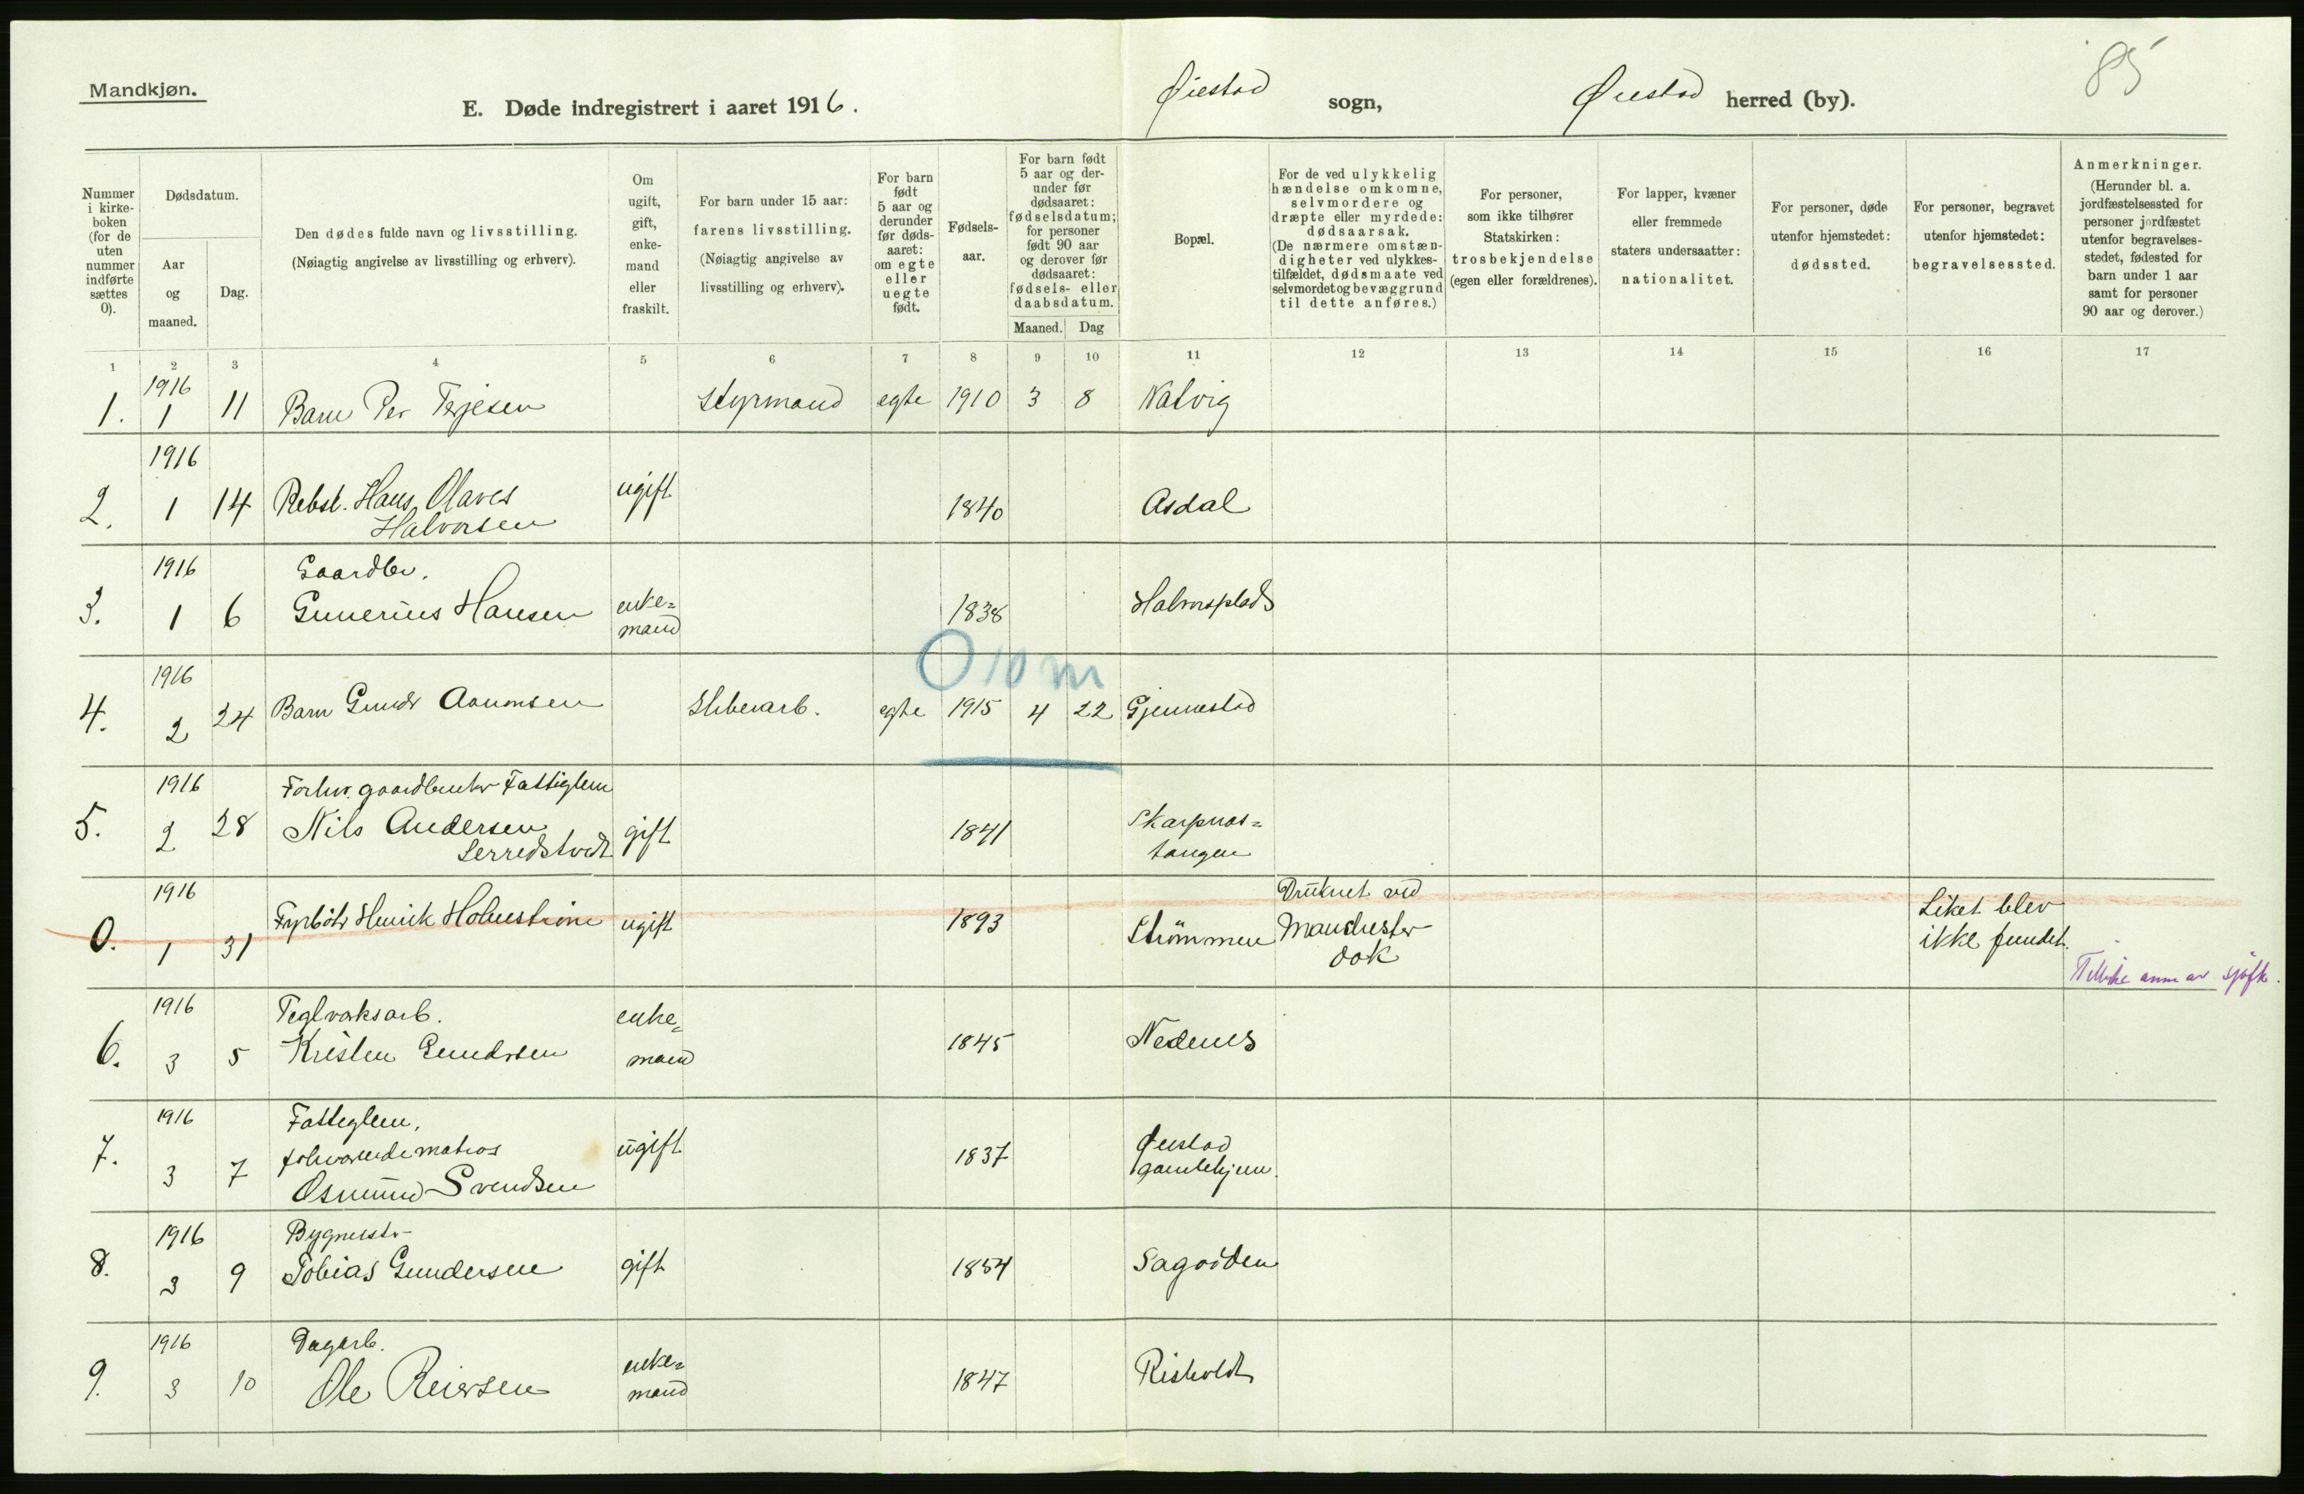 Mandkjøn.
E. Døde indregistrert i aaret 1916.
Øiestad sogn, Øiestad herred (by).
85
Nummer i kirkeboken (for de uten nummer indførte sættes 0).
Dødsdatum.
Aar og maaned.
Dag.
Den dødes fulde navn og livsstilling.
(Nøiagtig angivelse av livsstilling og erhverv).
Om ugift, gift, enkemand eller fraskilt.
For barn under 15 aar: farens livsstilling.
(Nøiagtig angivelse av livsstilling og erhverv).
For barn født 5 aar og derunder før dødsaaret: om egte eller uegte født.
Fødselsaar.
For barn født 5 aar og derunder før dødsaaret: fødselsdatum; for personer født 90 aar og derover før dødsaaret: fødsels- eller daabsdatum.
Maaned. Dag
Bopæl.
For de ved ulykkelig hændelse omkomne, selvmordere og dræpte eller myrdede: dødsaarsak.
(De nærmere omstændigheter ved ulykkestilfældet, dødsmaate ved selvmordet og bevæggrund til dette anføres.)
For personer, som ikke tilhører Statskirken: trosbekjendelse (egen eller forældrenes).
For lapper, kvæner eller fremmede staters undersaatter: nationalitet.
For personer, døde utenfor hjemstedet: dødssted.
For personer, begravet utenfor hjemstedet: begravelsessted.
Anmerkninger.
(Herunder bl. a. jordfæstelsessted for personer jordfæstet utenfor begravelsesstedet, fødested for barn under 1 aar samt for personer 90 aar og derover.)
1 2 3 4 5 6 7 8 9 10 11 12 13 14 15 16 17
1916
1. 1 11 Barn Per Terjesen Styrmand egte 1910 3 8 Natvig
1916
2. 1 14 Rebsl. Hans Olaves ugift 1840 Asdal
Halvorsen
1916 Gaardbr.
3. 1 6 Gunerius Hansen enke= 1838 Halvorsplads
mand
O 10 m
1916
4. 2 24 Barn Gundr Aanonsen Sliberarb. egte 1915 4 22 Gjennestad
1916 Forhv. gaardbruker Fattiglem
5. 2 28 Nils Andersen gift 1841 Skarpnes=
Serredstvedt tangen
1916 Druknet ved
0. 1 31 Fyrbøter Henrik Holmstrøm ugift 1893 Strømmen Manchester Liket blev
dok ikke fundet.
anm av sjøfk.
1916 Teglverksarb. enke=
6. 3 5 Kristen Gundersen mand 1845 Nedenes
1916 Fattiglem,
7. 3 7 forhværende matros ugift 1837 Øiestad
Osmund Svendsen gamlehjem.
1916 Bygmester
8. 3 9 Tobias Gundersen gift 1854 Sagoiden
1916 Dagarb.
9. 3 10 Ole Reiersen enke= 1847 Risholdt
mand